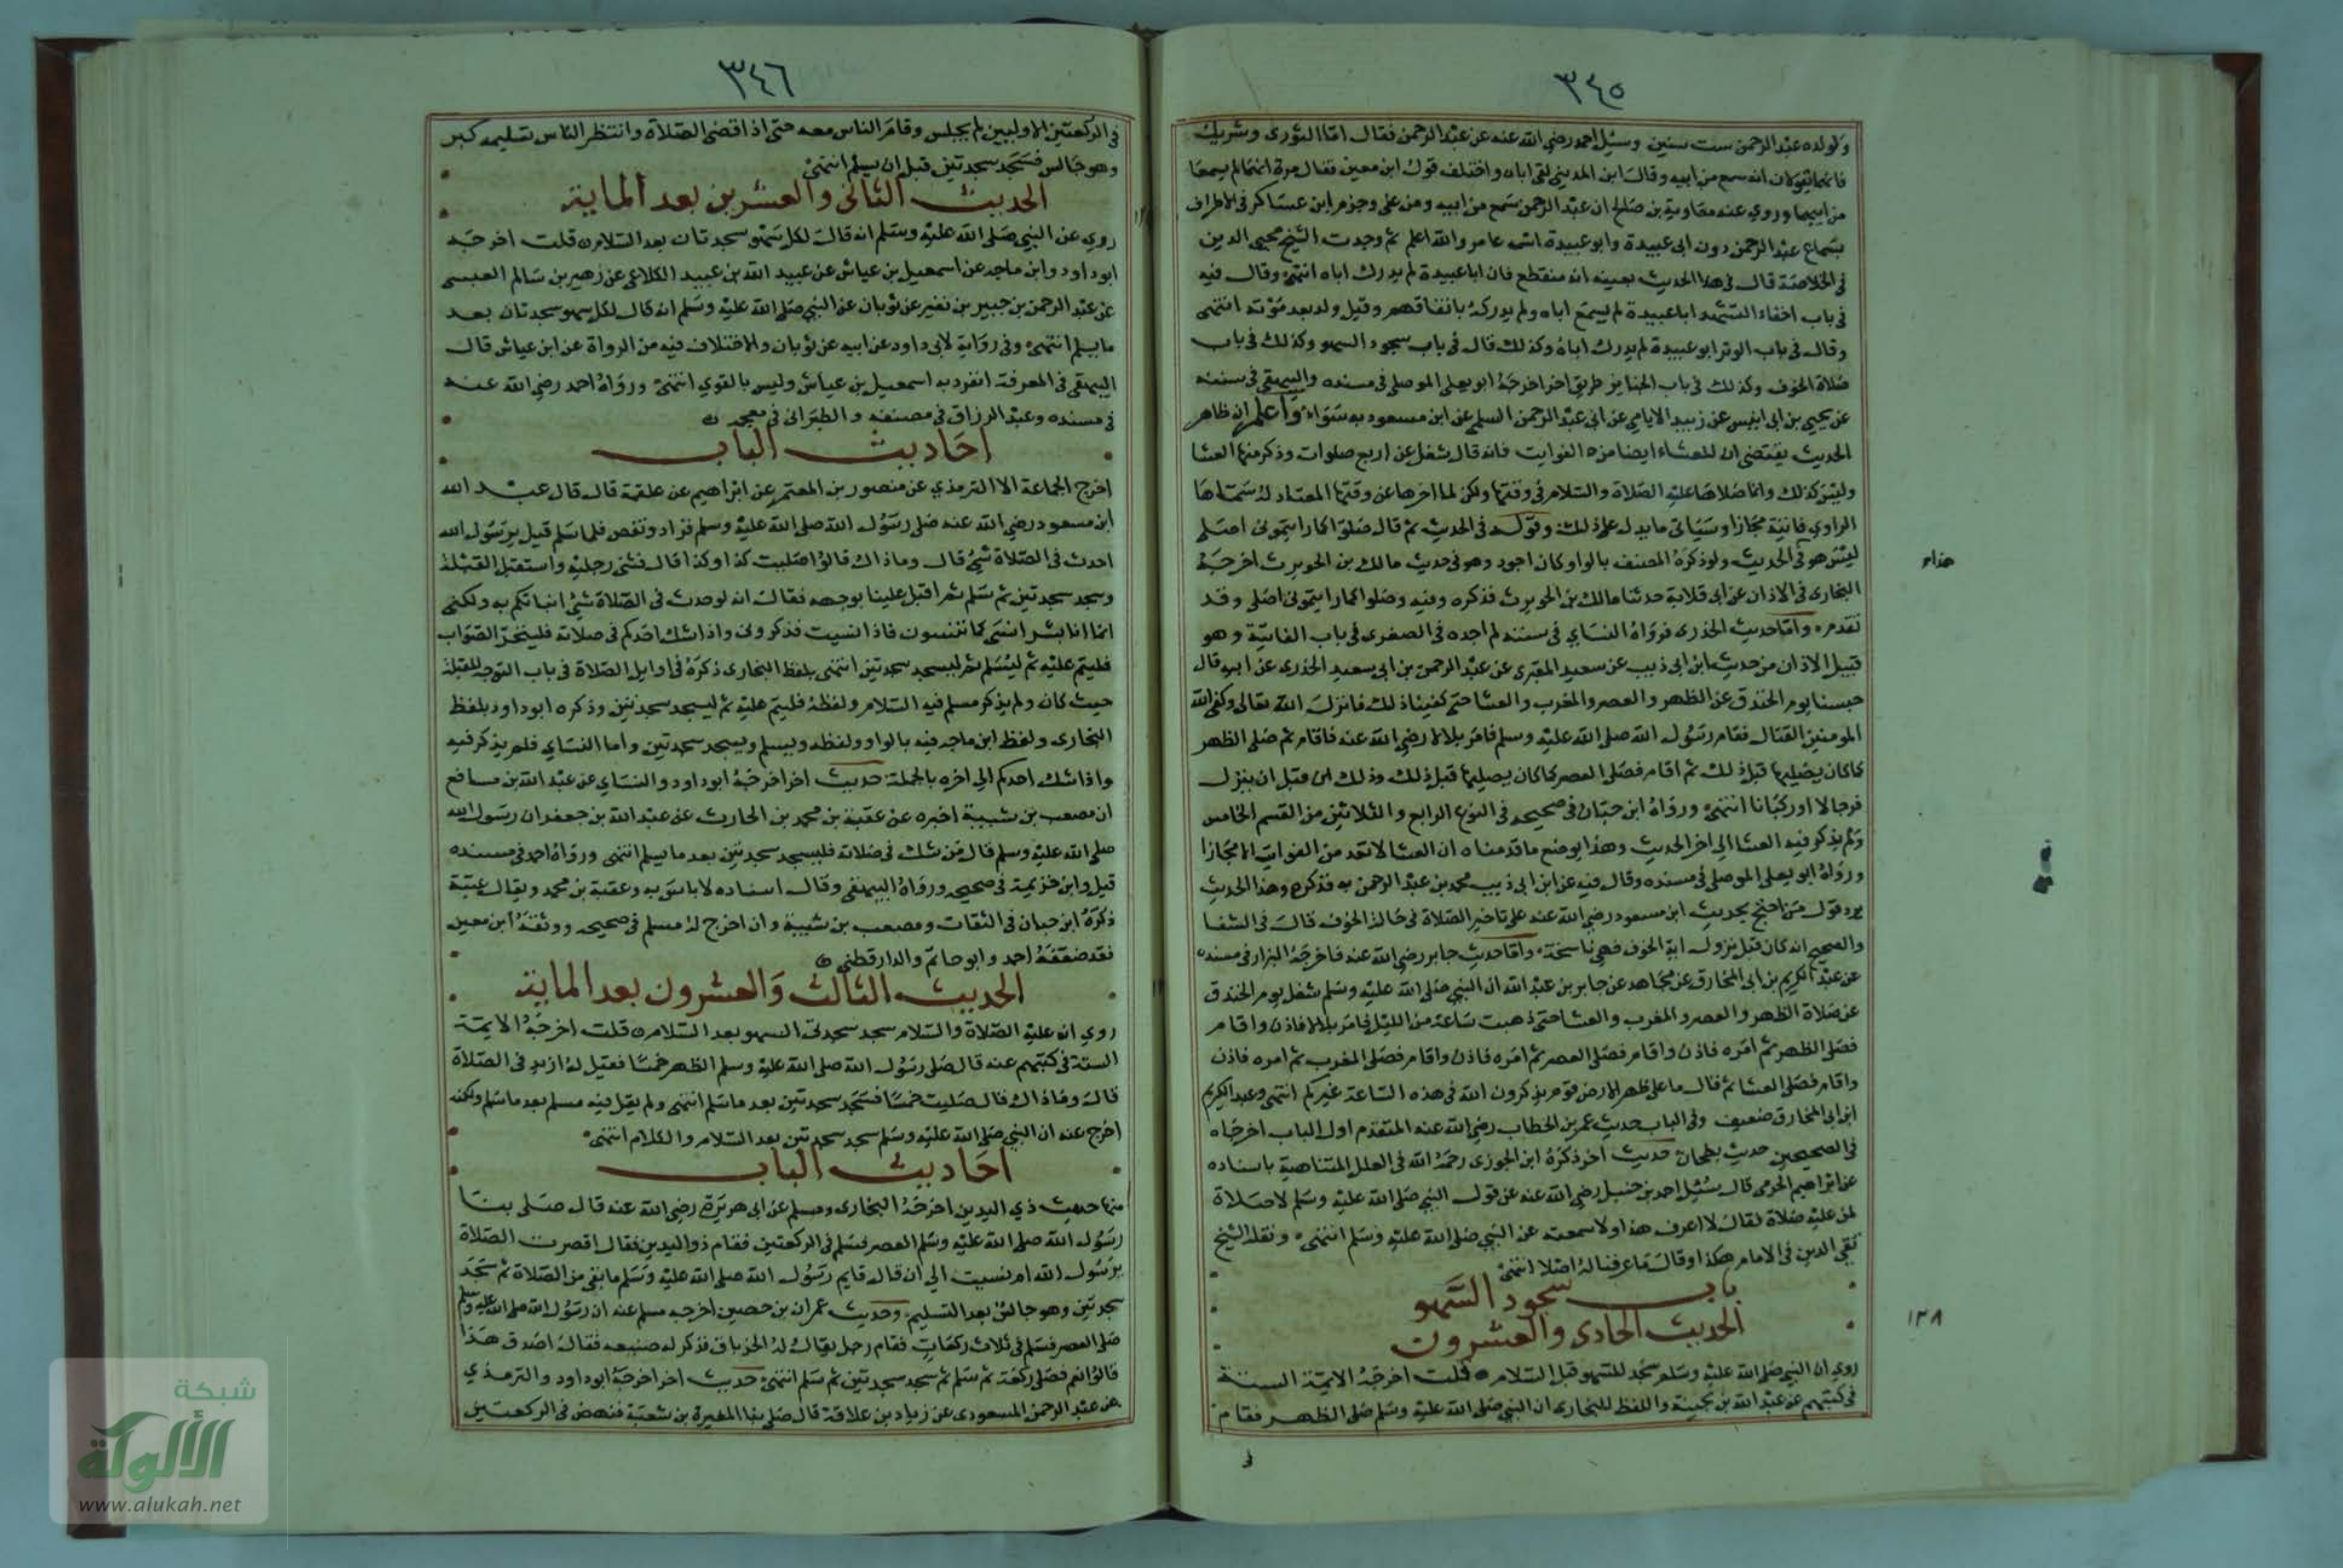 ٣٤٥
ولولده عبد الرحمن ست سنين وسئل احمد رضي الله عنه عن عبد الرحمن فقال اما الثوري وشريك
فانهما يقولان انه سمع من ابيه وقال ابن المديني لقي اباه واختلف قول ابن معين فقال مرة انهما لم يسمعا
من ابيهما وروي عنه معاوية بن صالح ان عبد الرحمن سمع من ابيه ومن علي وجزم ابن عساكر في الاطراف
بسماع عبد الرحمن دون ابي عبيدة وابو عبيدة اسمه عامر والله اعلم ثم وجدت الشيخ محيي الدين
في الخلاصة قال في هذا الحديث بعينه انه منقطع فان ابا عبيدة لم يدرك اباه انتهى وقال فيه
في باب اخفاء التشهد ابا عبيدة لم يسمع اباه ولم يدركه باتفاقهم وقيل ولد بعد موته انتهى
وقال في باب الوتر ابو عبيدة لم يدرك اباه وكذلك قال في باب سجود السهو وكذلك في باب
صلاة الخوف وكذلك في باب الجنايز طريق اخر اخرجه ابو يعلى الموصلي في مسنده والبيهقي في سننه
عن يحيي بن ابي انيس عن زبيد الايامي عن ابي عبد الرحمن السلمي عن ابن مسعود به سواء واعلم ان ظاهر
الحديث يقتضي ان للعشاء ايضا من الفوايت فانه قال شغل عن اربع صلوات وذكر منها العشا
وليس كذلك وانما صلاها عليه الصلاة والسلام في وقتها ولكن لما اخرها عن وقتها المعتاد له سماها
الراوي فايتة مجازا وسياتي ما يدل على ذلك وقوله في الحديث ثم قال صلوا كما رايتموني اصلي
ليس هو في الحديث ولو ذكره المصنف بالواو كان اجود وهو في حديث مالك بن الحويرث اخرجه
هذاء
البخاري في الاذان عن ابي قلابة حدثنا مالك بن الحويرث فذكره وفيه وصلوا كما رايتموني اصلي وقد
تقدم واما حديث الخدري فرواه النساي في سننه لم اجده في الصغرى في باب الفايتة وهو
قبيل الاذان من حديث ابن ابي ذيب عن سعيد المقبري عن عبد الرحمن بن ابي سعيد الخدري عن ابيه قال
حبسنا يوم الخندق عن الظهر والعصر والمغرب والعشا حتى كفينا ذلك فانزل الله تعالى وكفى الله
المومنين القتال فقام رسول الله صلى الله عليه وسلم فامر بلالا رضي الله عنه فاقام ثم صلى الظهر
كما كان يصليها قبل ذلك ثم اقام فصلى العصر كما كان يصليها قبل ذلك وذلك قبل ان ينزل
فرجالا او ركبانا انتهى ورواه ابن حبان في صحيحه في النوع الرابع والثلاثين من القسم الخامس
ولم يذكر فيه العشا الي اخر الحديث وهذا يوضح ما قدمناه ان العشا لا تعد من الفوايت الا مجازا
ورواه ابو يعلى الموصلي في مسنده وقال فيه عن ابن ابي ذيب محمد بن عبد الرحمن به فذكره وهذا الحديث
يرد قول من احتج بحديث ابن مسعود رضي الله عنه على تاخير الصلاة في حالة الخوف قال في الشفا
والصحيح انه كان قبل نزول اية الخوف فهي ناسخة واما حديث جابر رضي الله عنه فاخرجه البزار في مسنده
عن عبد الكريم بن ابي المخارق عن مجاهد عن جابر بن عبد الله ان النبي صلى الله عليه وسلم شغل يوم الخندق
عن صلاة الظهر والعصر والمغرب والعشا حتى ذهبت ساعة من الليل فامر بلالا فاذن واقام
فصلى الظهر ثم امره فاذن واقام فصلى العصر ثم امره فاذن واقام فصلى المغرب ثم امره فاذن
واقام فصلى العشا ثم قال ما على ظهر الارض قوم يذكرون الله في هذه الساعة غيركم انتهى وعبد الكريم
ابن ابي المخارق ضعيف وفي الباب حديث عمر بن الخطاب رضي الله عنه المتقدم اول الباب اخرجاه
في الصحيحين حديث بطحان حديث اخر ذكره ابن الجوزي رحمه الله في العلل المتناهية باسناده
عن ابراهيم الحربي قال سئل احمد بن حنبل رضي الله عنه عن قول النبي صلى الله عليه وسلم لا صلاة
لمن عليه صلاة فقال لا اعرف هذا ولا سمعته عن النبي صلى الله عليه وسلم انتهى ونقله الشيخ
تقي الدين في الامام هكذا وقال ما عرفناله اصلا انتهى
باب سجود السهو
الحديث الحادى والعشرون
١٢٨
روي ان النبي صلى الله عليه وسلم سجد للسهو قبل السلام قلت اخرجه الايمة الستة
في كتبهم عن عبد الله بن بحينة واللفظ للبخاري ان النبي صلى الله عليه وسلم صلى الظهر فقام
في
٣٤٦
في الركعتين الاوليين لم يجلس وقام الناس معه حتى اذا قضى الصلاة وانتظر الناس تسليمه كبر
وهو جالس فسجد سجدتين قبل ان يسلم انتهى
الحديث الثانى والعشرين بعد الماية
روي عن النبي صلى الله عليه وسلم انه قال لكل سهو سجدتان بعد السلام قلت اخرجه
ابو داود وابن ماجه عن اسمعيل بن عياش عن عبيد الله بن عبيد الكلاعي عن زهير بن سالم العبسي
عن عبد الرحمن بن جبير بن نفير عن ثوبان عن النبي صلى الله عليه وسلم انه قال لكل سهو سجدتان بعد
ما يسلم انتهى وفي رواية لابي داود عن ابيه عن ثوبان والاختلاف فيه من الرواة عن ابن عياش قال
البيهقي في المعرفة انفرد به اسمعيل بن عياش وليس بالقوي انتهى ورواه احمد رضي الله عنه
في مسنده وعبد الرزاق في مصنفه والطبراني في معجمه
احاديث الباب
اخرج الجماعة الا الترمذي عن منصور بن المعتمر عن ابراهيم عن علقمة قال قال عبد الله
ابن مسعود رضي الله عنه صلى رسول الله صلى الله عليه وسلم فزاد ونقص فلما سلم قيل يرسول الله
احدث في الصلاة شئ قال وماذاك قالوا صليت كذا وكذا قال فثنى رجليه واستقبل القبلة
وسجد سجدتين ثم سلم ثم اقبل علينا بوجهه فقال انه لو حدث في الصلاة شئ انباتكم به ولكني
انما انا بشر انسى كما تنسون فاذا نسيت فذكروني واذا شك احدكم في صلاته فليتحرّ الصواب
فليتم عليه ثم ليسلم ثم ليسجد سجدتين انتهى بلفظ البخاري ذكره في اوايل الصلاة في باب التوجه للقبلة
حيث كان ولم يذكر مسلم فيه السلام ولفظه فليتم عليه ثم ليسجد سجدتين وذكره ابو داود بلفظ
البخاري ولفظ ابن ماجه فيه بالواو ولفظه ويسلم ويسجد سجدتين واما النساي فلم يذكر فيه
واذا شك احدكم الى اخره بالجملة حديث اخر اخرجه ابو داود والنساي عن عبد الله بن مسافع
ان مصعب بن شيبة اخبره عن عقبة بن محمد بن الحارث عن عبد الله بن جعفر ان رسول الله
صلى الله عليه وسلم قال من شك في صلاته فليسجد سجدتين بعد ما يسلم انتهى ورواه احمد في مسنده
قيل وابن خزيمة في صحيحه ورواه البيهقي وقال اسناده لا باس به وعقبة بن محمد ويقال عتبة
ذكره ابن حبان في الثقات ومصعب بن شيبة وان اخرج له مسلم في صحيحه ووثقه ابن معين
فقد ضعفه احمد وابو حاتم والدارقطني
الحديث الثالث والعشرون بعد الماية
روي انه عليه الصلاة والسلام سجد سجدتي السهو بعد السلام قلت اخرجه الايمة
الستة في كتبهم عنه قال صلى رسول الله صلى الله عليه وسلم الظهر خمسا فقيل له ازيد في الصلاة
قال وماذاك قال صليت خمسا فسجد سجدتين بعد ما سلم انتهى ولم يقل فيه مسلم بعد ما سلم ولكنه
اخرج عنه ان النبي صلى الله عليه وسلم سجد سجدتين بعد السلام والكلام انتهى
احاديث الباب
منها حديث ذي اليدين اخرجه البخاري ومسلم عن ابي هريرة رضي الله عنه قال صلى بنا
رسول الله صلى الله عليه وسلم العصر فسلم في الركعتين فقام ذو اليدين فقال اقصرت الصلاة
يرسول الله ام نسيت الي ان قال فاتم رسول الله صلى الله عليه وسلم ما بقي من الصلاة ثم سجد
سجدتين وهو جالس بعد التسليم وحديث عمران بن حصين اخرجه مسلم عنه ان رسول الله صلى الله عليه وسلم
صلى العصر فسلم في ثلاث ركعات فقام رجل يقال له الخرباق فذكر له صنيعه فقال اصدق هذا
قالوا نعم فصلى ركعة ثم سلم ثم سجد سجدتين ثم سلم انتهى حديث اخر اخرجه ابو داود والترمذي
عن عبد الرحمن المسعودي عن زياد بن علاقة قال صلى بنا المغيرة بن شعبة فنهض في الركعتين
شبكة
الألوكة
www.alukah.net